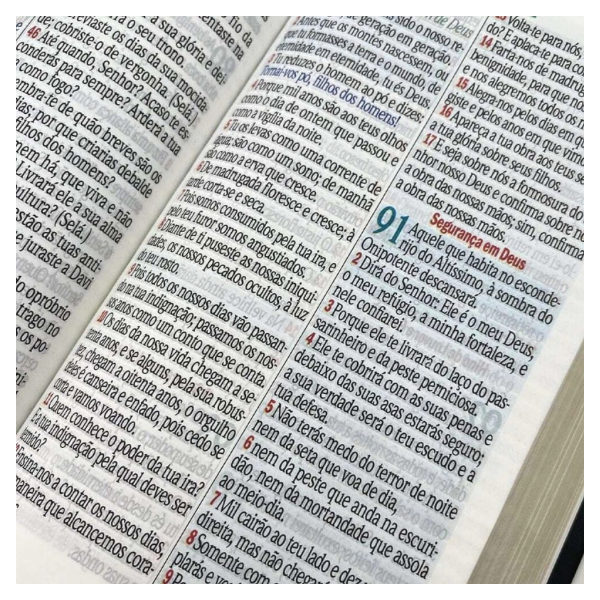 a sua glória e dei-
o seu trono.
aste os dias da sua mocida-
de; cobriste-o de vergonha. (Selá.)
46 Até quando, Senhor? Acaso te es-
conderás para sempre? Arderá a tua
como fogo?
mbra-te de quão breves são os
dias; por que criarias debalde
filhos dos homens?
mem há, que viva e não
Livrará ele a sua alma
(Selá.)
estão as tuas anti-
e juraste a Davi
o opróbrio
trago no
os po-
2 Antes que os montes nascessem, ou
que tu formasses a terra e o mundo, de
eternidade em eternidade, tu és Deus.
3 Tu reduzes o homem ao pó e dizes:
Tornai-vos pó, filhos dos homens!
4 Porque mil anos são aos teus olhos
como o dia de ontem que passou e
como a vigília da noite.
5 Tu os levas como uma corrente de
água; são como um sono; de manhã
são como a erva que cresce.
6 De madrugada floresce e cresce; à
tarde corta-se e seca.
7 Pois somos consumidos pela tua ira, e
pelo teu furor somos angustiados.
8 Diante de ti puseste as nossas iniqui-
dades, os nossos pecados ocultos, à luz
do teu rosto.
9 Pois todos os nossos dias vão passan-
do na tua indignação; passamos os nos-
sos anos como um conto que se conta.
10 Os dias da nossa vida chegam a se-
tenta anos, e se alguns, pela sua robus-
tez, chegam a oitenta anos, o orgulho
deles é canseira e enfado, pois cedo se
corta e vamos voando.
11 Quem conhece o poder da tua ira?
E a tua indignação pela qual deves ser
temido?
Ensina-nos a contar os nossos dias,
maneira que alcancemos cora-
Volta-te para nós,
do? E aplaca-te para co
14 Farta-nos de madrug
benignidade, para que no
e nos alegremos todos os n
15 Alegra-nos pelos dias em qu
giste e pelos anos em que vimo
16 Apareça a tua obra aos teus se
a tua glória sobre seus filhos.
17 E seja sobre nós a formosura do
nhor nosso Deus e confirma sobre n
a obra das nossas mãos; sim, confirma
a obra das nossas mãos.
Segurança em Deus
91 Aquele que habita no esconde-
rijo do Altíssimo, à sombra do
Onipotente descansará.
2 Dirá do Senhor: Ele é o meu Deus,
o meu refúgio, a minha fortaleza, e
nele confiarei.
3 Porque ele te livrará do laço do pas-
sarinheiro e da peste perniciosa.
4 Ele te cobrirá com as suas penas e
debaixo das suas asas estarás seguro;
a sua verdade será o teu escudo e a
tua defesa.
5 Não terás medo do terror de noite
nem da seta que voa de dia,
6 nem da peste que anda na escuri-
dão, nem da mortandade que assola
ao meio-dia.
7 Mil cairão ao teu lado e dez
direita, mas não chegar
8 Somente com
plarás e v
9